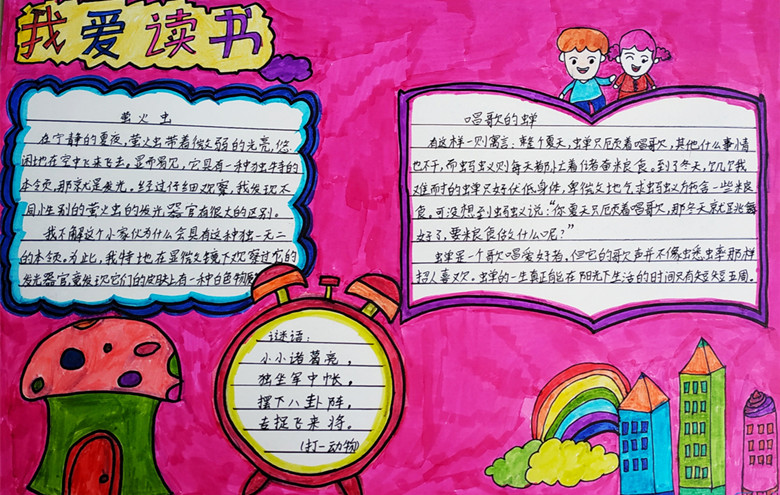 我爱读书
萤火虫
在宁静的夏夜，萤火虫带着微弱的光亮，悠
闲地在空中飞来飞去。显而易见，它具有一种独特的
本领，那就是发光。经过仔细观察，我发现不
同性别的萤火虫的发光器官有很大的区别。
我不解这个小家伙为什么会具有这种独一无二
的本领，为此，我特地在显微镜下观察过它的
发光器官，竟发现它们的皮肤上有一种白色物质
唱歌的蝉
有这样一则寓言：整个夏天，虫蝉只顾着唱歌，其他什么事情
也不干，而蚂蚁则每天都忙着储备粮食。到了冬天，饥饿
难耐的蝉只好伏低身体，卑微地乞求蚂蚁施舍一些粮
食。可没想到蚂蚁说：“你夏天只顾着唱歌，那冬天就足
好了，要粮食做什么呢？”
蝉是一个歌唱爱好者，但它的歌声并不像蟋蟀那样
招人喜欢。蝉的一生真正能在阳光下生活的时间只有短短五周。
谜语：
小小诸葛亮，
独坐军中帐。
摆下八卦阵，
去捉飞来将。
(打一动物)